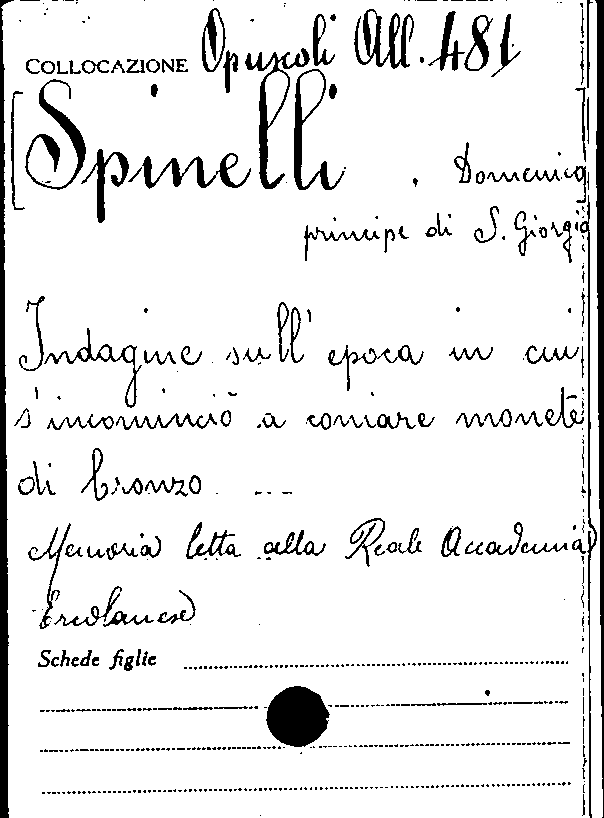 COLLOCAZIONE Opuscoli All. 481
[Spinelli. Domenico]
principe di S. Giorgio
Indagine sull' epoca in cui
s'incominciò a coniare monete
di bronzo ...
Memoria letta alla Reale Accademia
Ercolanese
Schede figlie